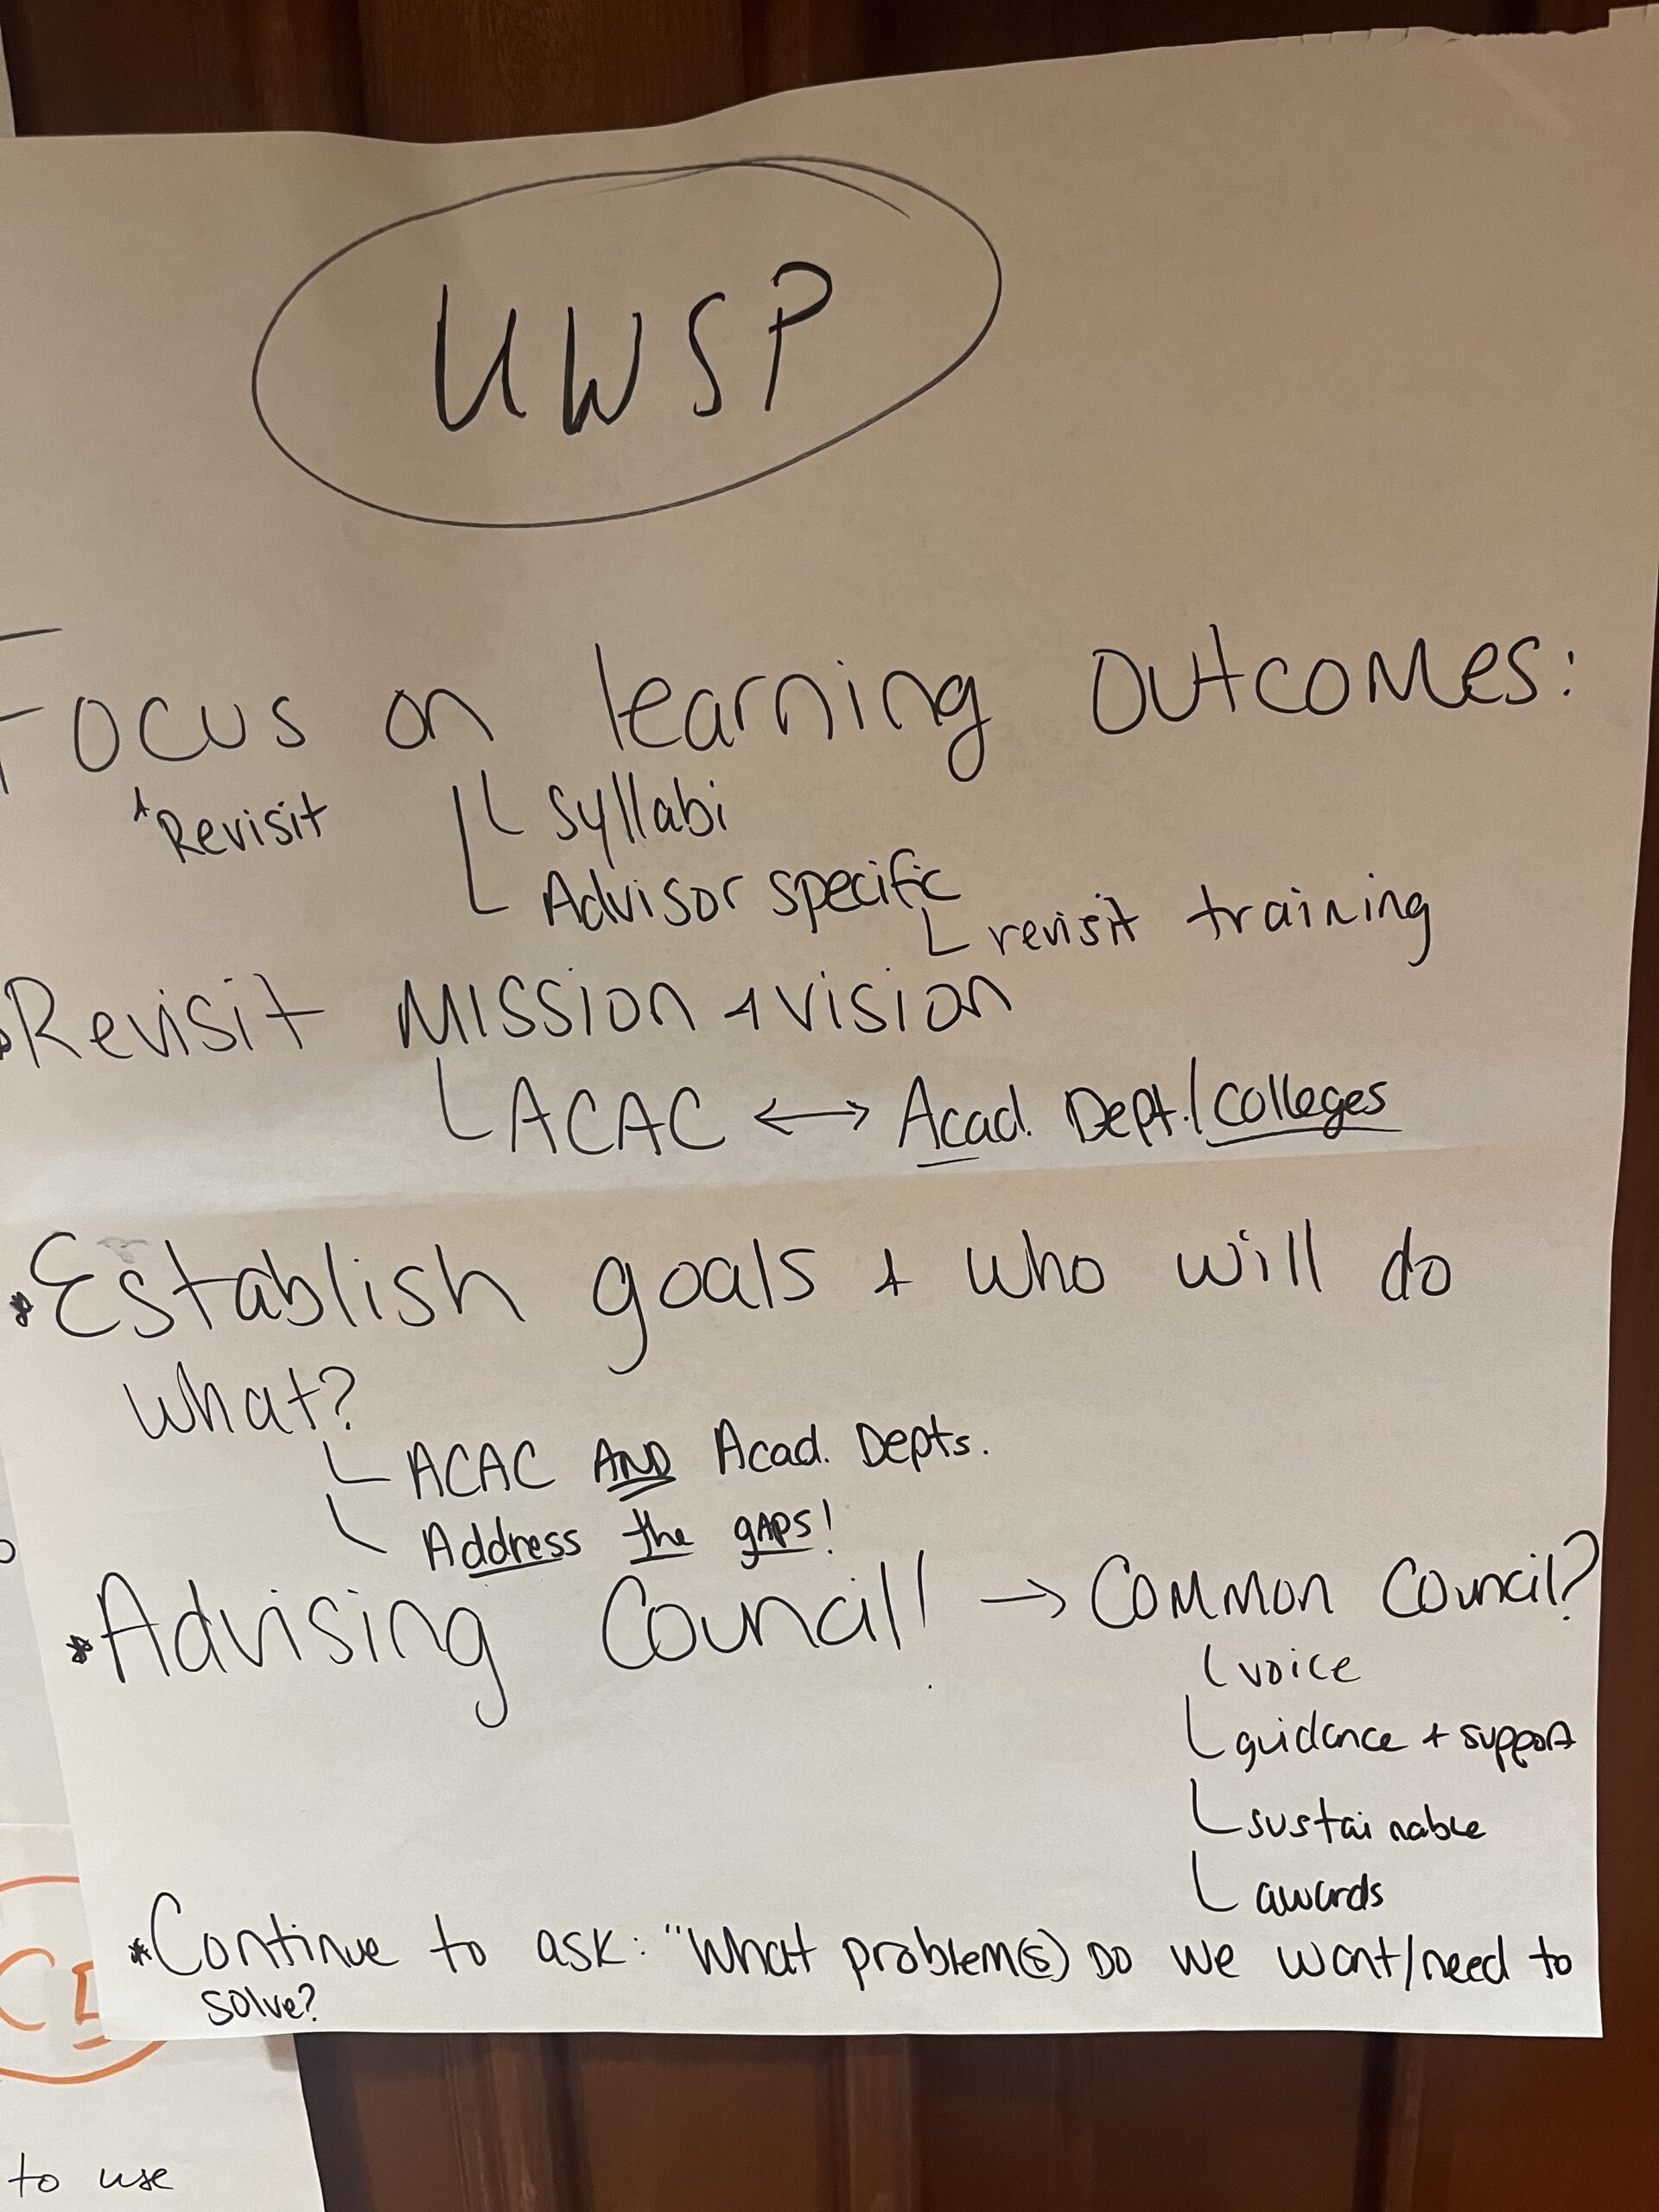 UWSP
Focus on learning outcomes:
+Revisit
syllabi
Advisor specific
revisit training
Revisit Mission + vision
ACAC ↔ Acad. Dept./colleges
*Establish goals + who will do
what?
ACAC AND Acad. Depts.
Address the gaps!
*Advising Council! → Common Council?
voice
guidance + support
sustainable
awards
*Continue to ask: "What problem(s) Do we want/need to
solve?
to use